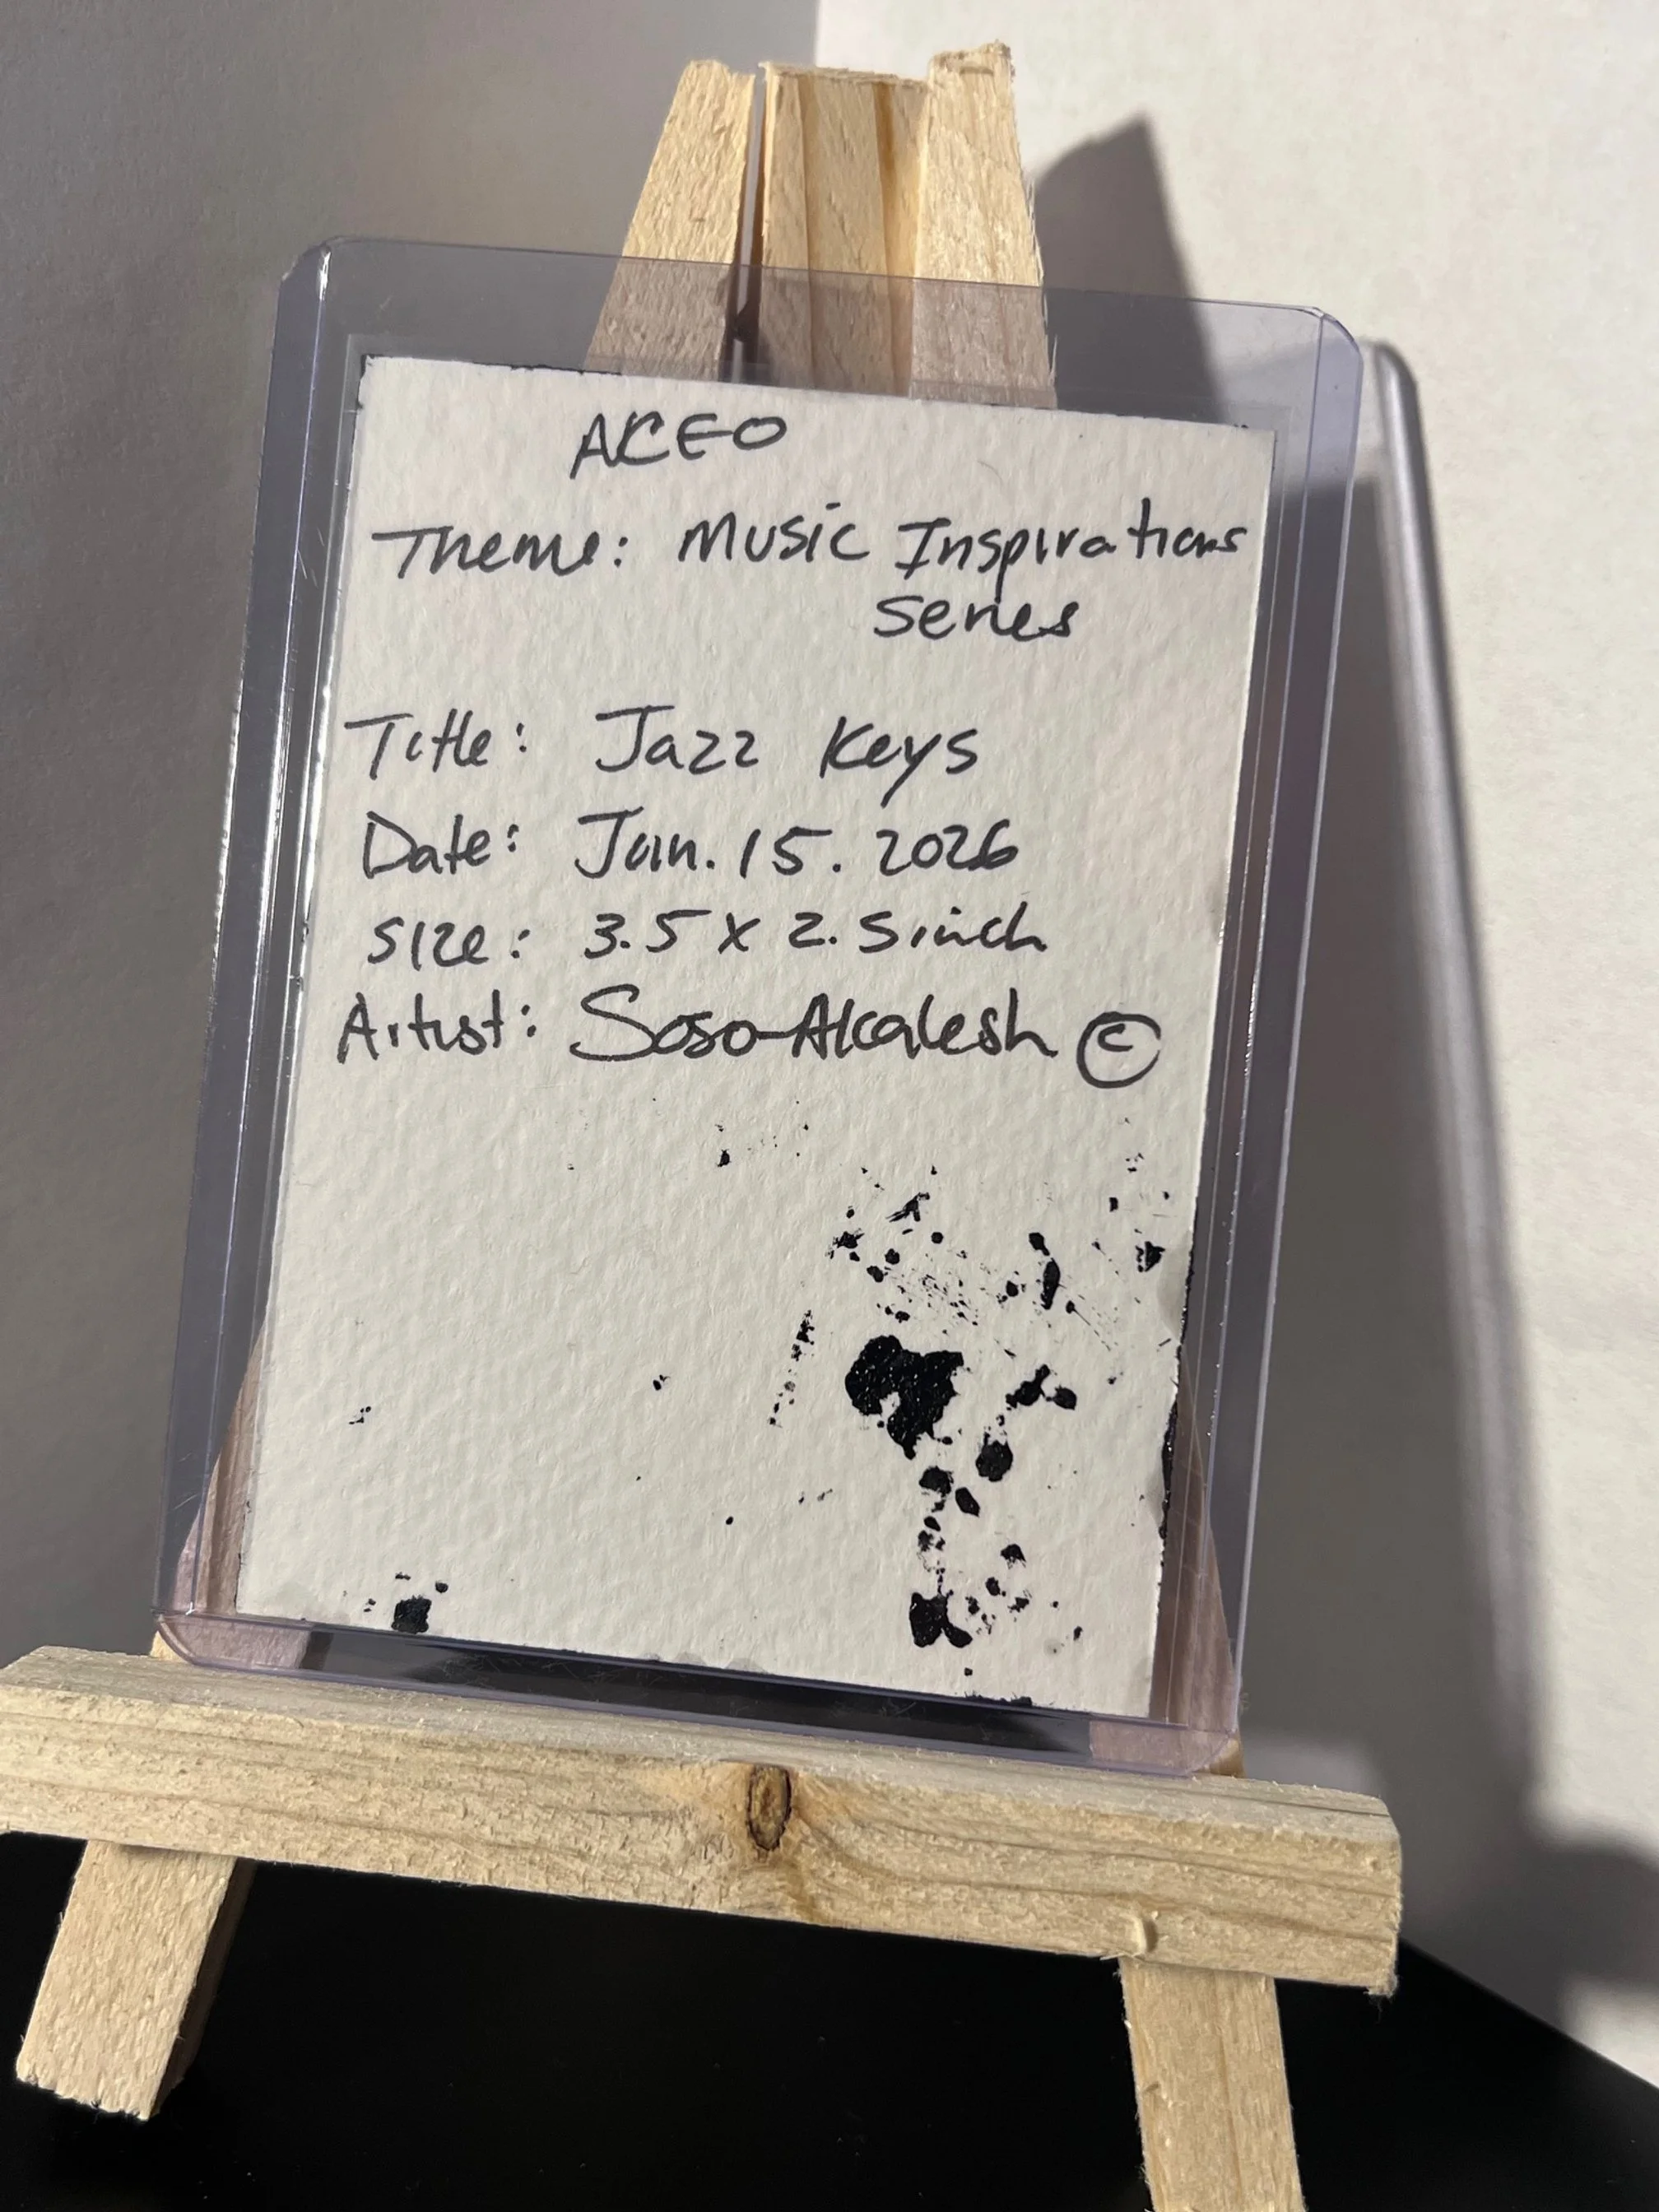 ACEO
Theme: Music Inspirations
Series
Title: Jazz Keys
Date: Jan. 15. 2026
Size: 3.5 x 2.5 inch
Artist: Soso-Alkalesh ©